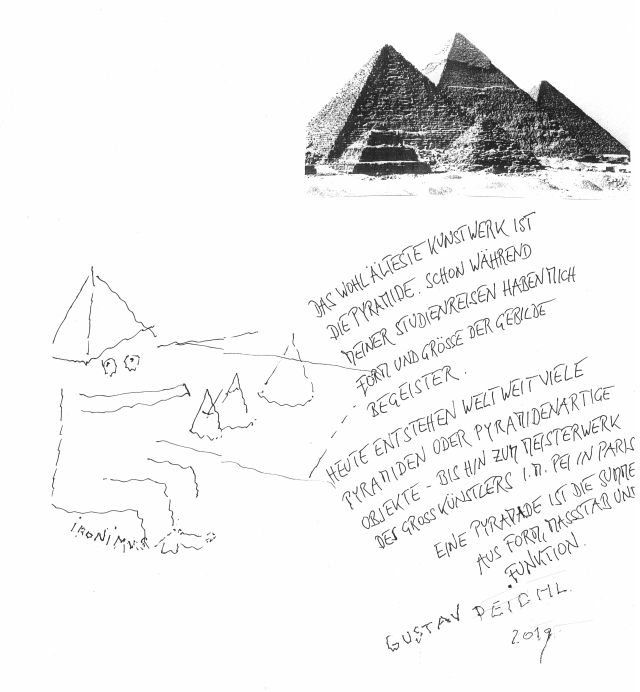 DAS WOHL ÄLTESTE KUNSTWERK IST
DIE PYRAMIDE. SCHON WÄHREND
MEINER STUDIENREISEN HABEN MICH
FORM UND GRÖSSE DER GEBILDE
BEGEISTER.
HEUTE ENTSTEHEN WELTWEIT VIELE
PYRAMIDEN ODER PYRAMIDENARTIGE
OBJEKTE - BIS HIN ZUM MEISTERWERK
DES GROSSKÜNSTLERS I.M. PEI IN PARIS
EINE PYRAMADE IST DIE SUMME
AUS FORM, MASSSTAB UND
FUNKTION.
GUSTAV PEICHL.
2019
IRONIMUS